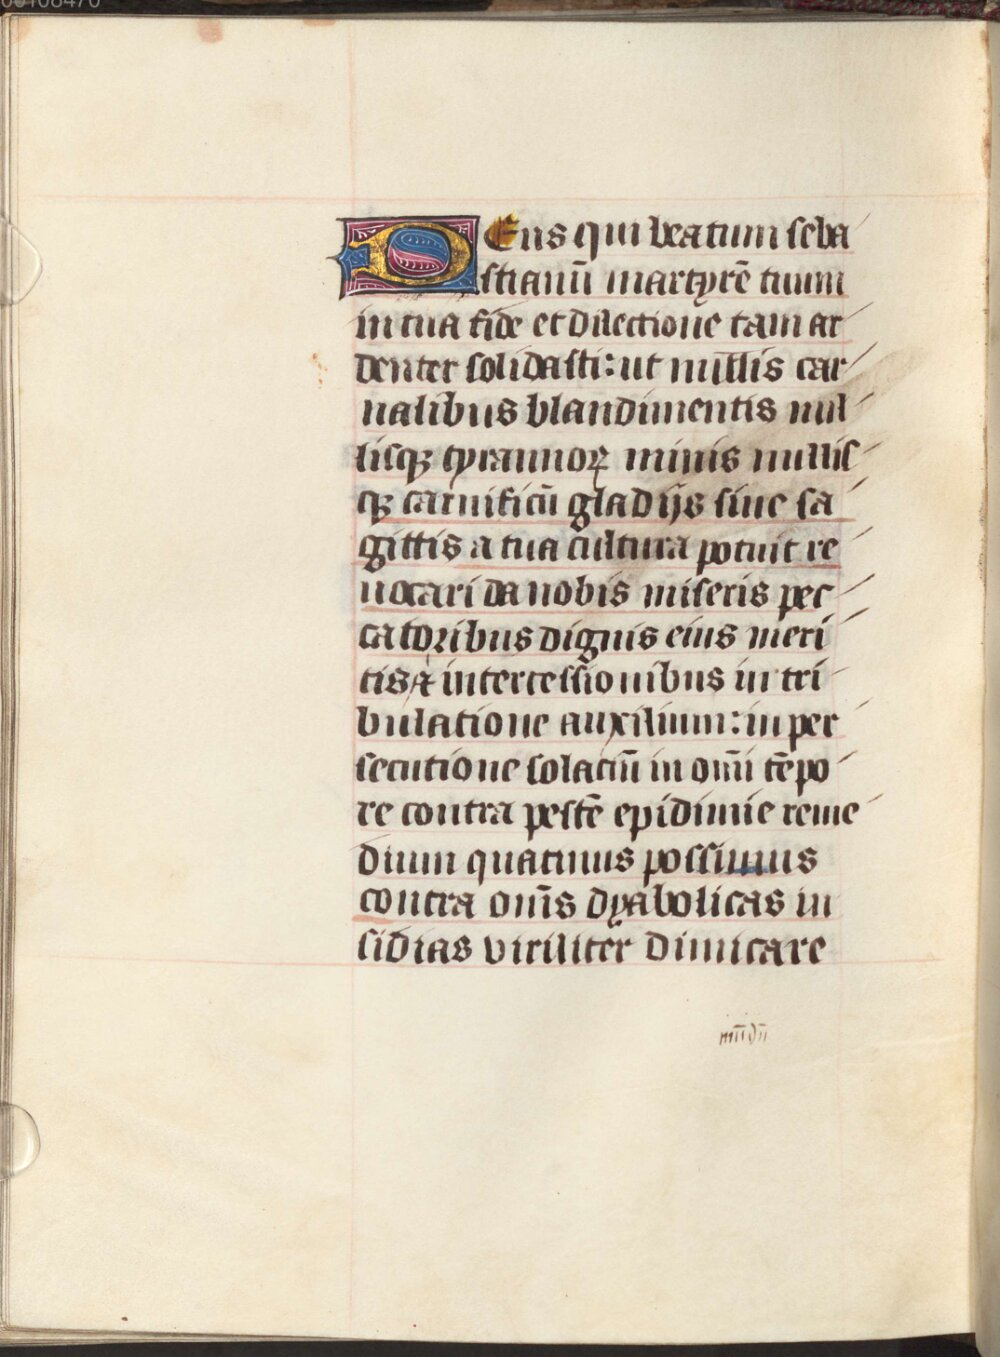 DEus qui beatum seba
stianū martyrē tuum
in tua fide et dilectione tam ar
denter solidasti: ut nullis car
nalibus blandimentis nul
lisqꝫ tyrannoꝝ minis nullis
qꝫ carnificū gladijs siue sa
gittis a tua cultura potuit re
uocari da nobis miseris pec
catoribus dignis eius meri
tis ⁊ intercessionibus in tri
bulatione auxilium: in per
secutione solaciū in omī tēpo
re contra pestē epidimie reme
dium quatinus possimus
contra om̄s dyabolicas in
sidias viriliter dimicare